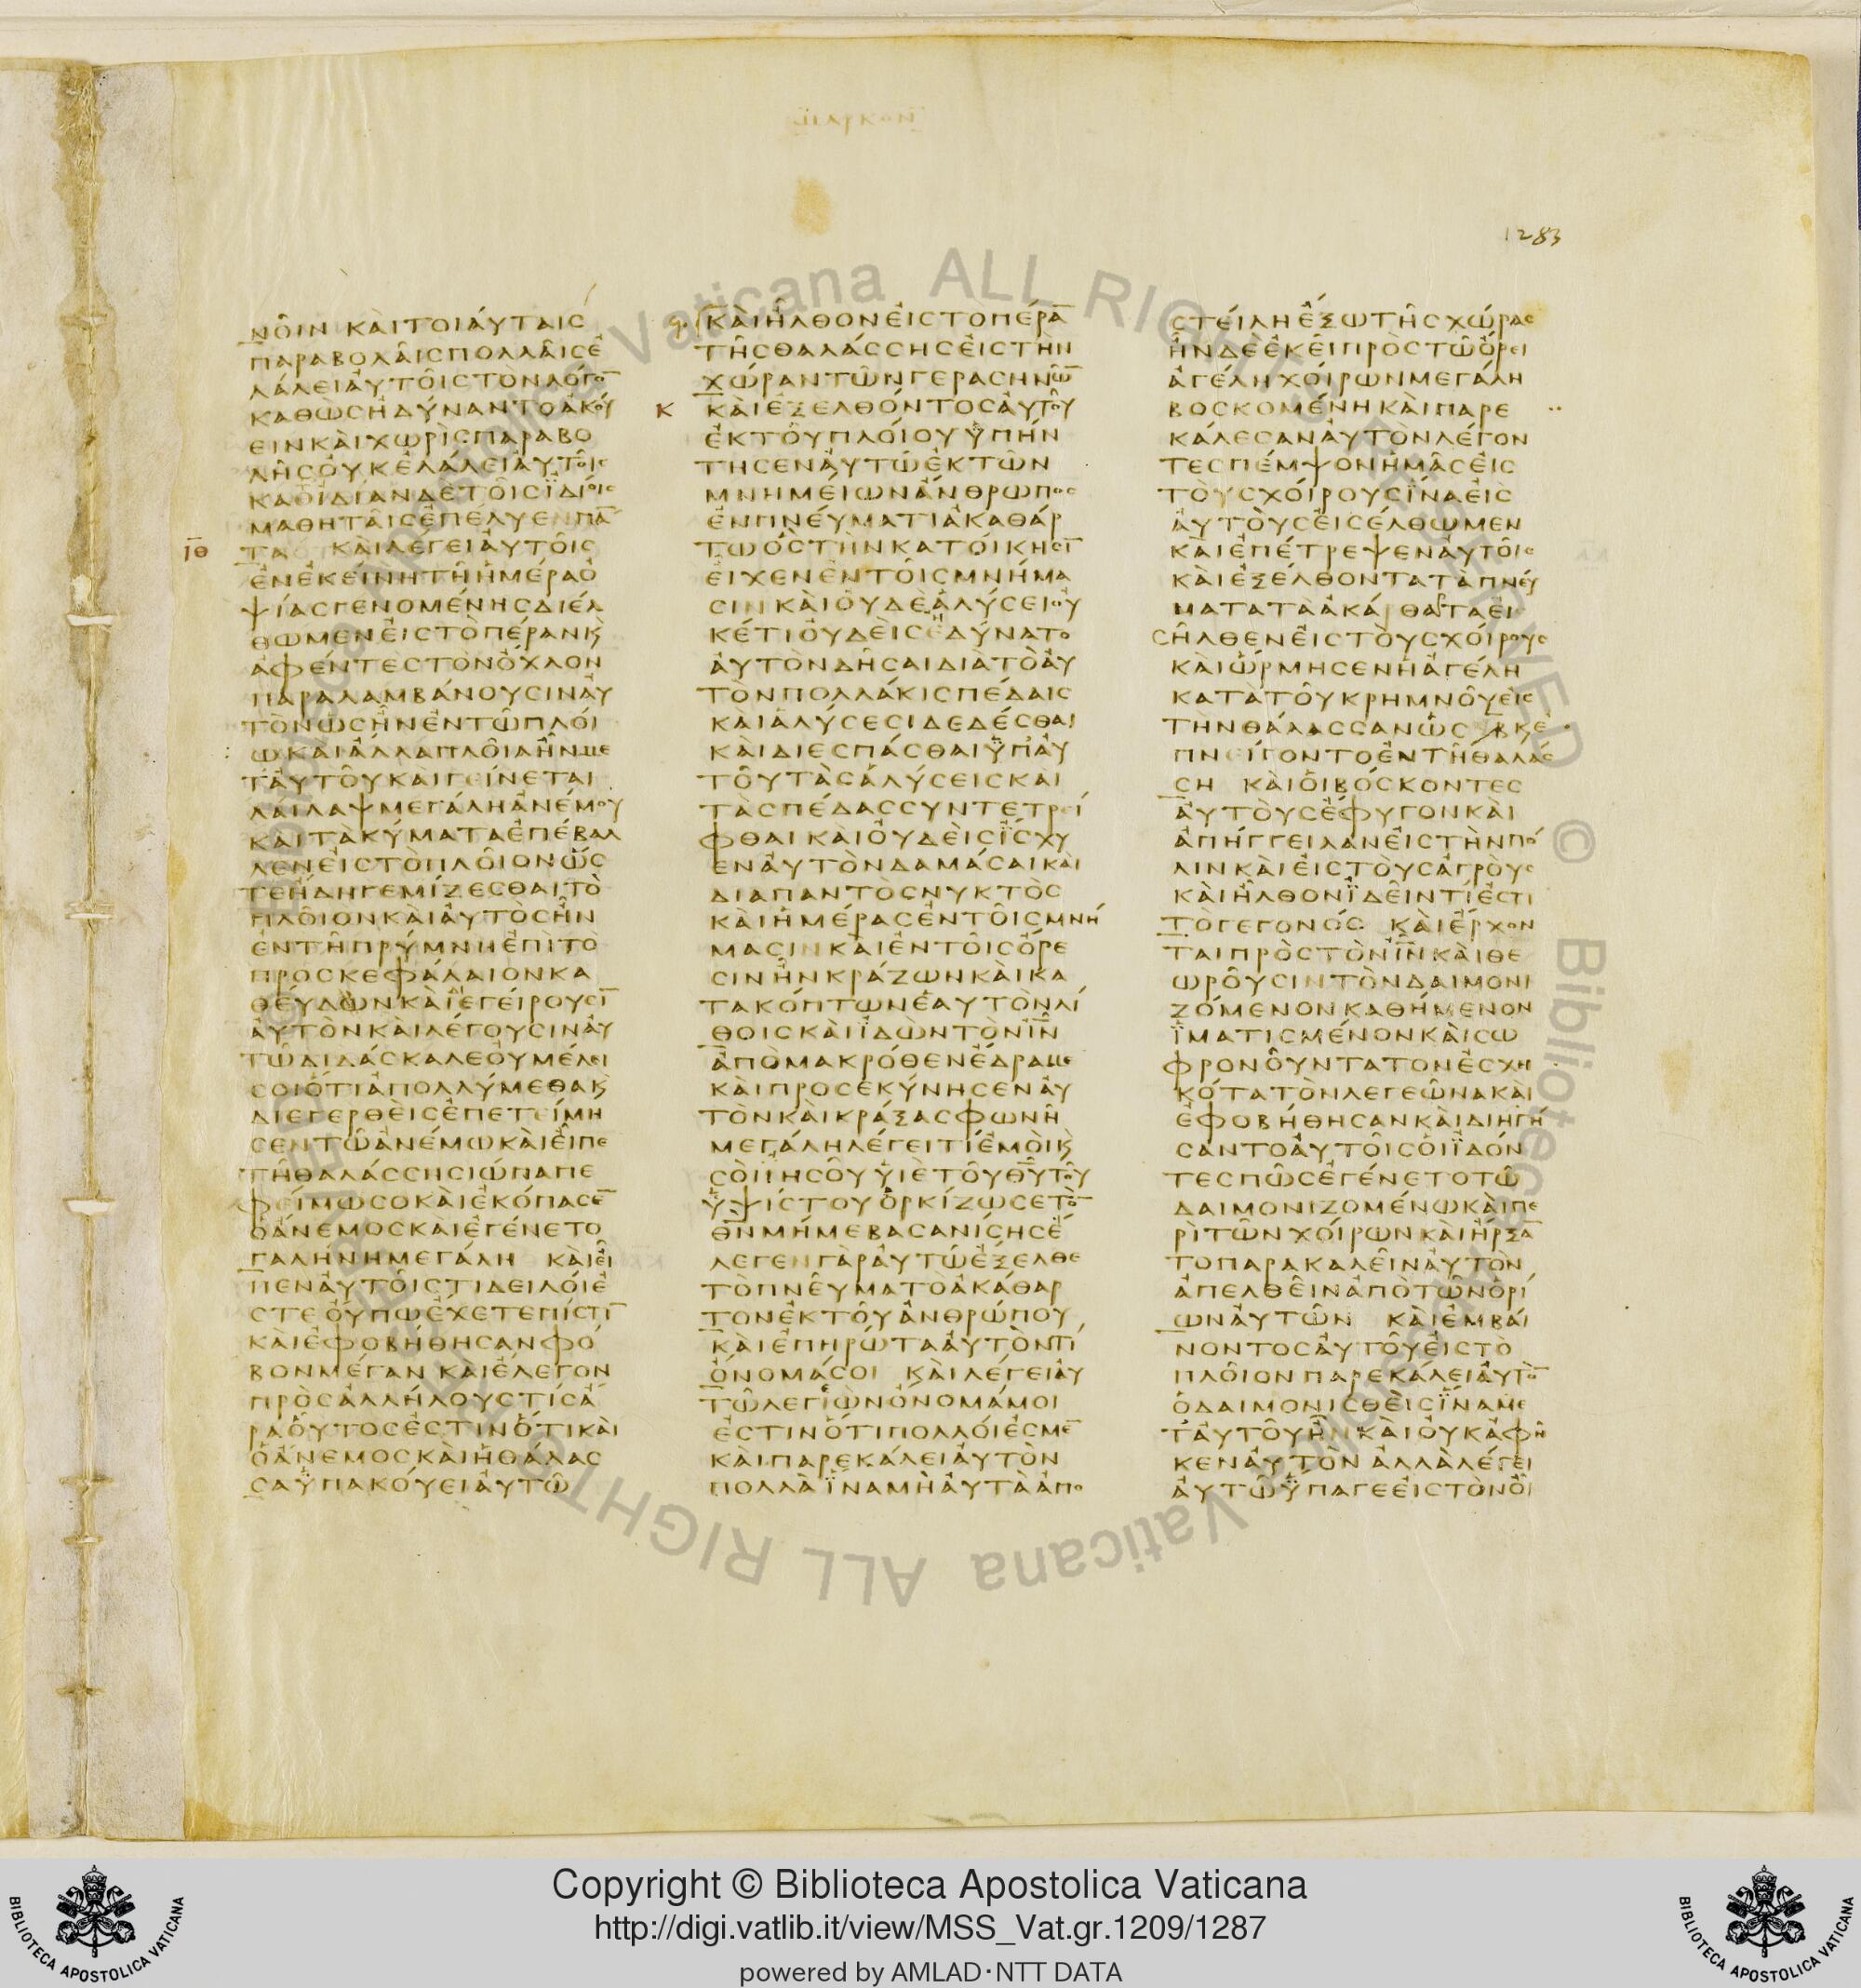 μαρκον
1283
ΝΟΙΝ ΚΑΙΤΟΙΑΥΤΑΙC
ΠΑΡΑΒΟΛΑΙCΠΟΛΛΑΙCΕ
ΛΑΛΕΙΑΥΤΟΙCΤΟΝΛΟΓΟ̅
ΚΑΘΩCΗΔΥΝΑΝΤΟΑΚΟΥ
ΕΙΝΚΑΙΧΩΡΙCΠΑΡΑΒΟ
ΛΗCΟΥΚΕΛΑΛΕΙΑΥΤΟΙC
ΚΑΘΙΔΙΑΝΔΕΤΟΙCΪΔΙΟΙC
ΜΑΘΗΤΑΙCΕΠΕΛΥΕΝΠΑ̅
Ι̅Θ̅ ΤΑ ΚΑΙΛΕΓΕΙΑΥΤΟΙC
ΕΝΕΚΕΙΝΗΤΗΗΜΕΡΑΟ
ΨΙΑCΓΕΝΟΜΕΝΗCΔΙΕΛ
ΘΩΜΕΝΕΙCΤΟΠΕΡΑΝΚ
ΑΦΕΝΤΕCΤΟΝΟΧΛΟΝ
ΠΑΡΑΛΑΜΒΑΝΟΥCΙΝΑΥ
ΤΟΝΩCΗΝΕΝΤΩΠΛΟΙ
ΩΚΑΙΑΛΛΑΠΛΟΙΑΗΝΜΕ
ΤΑΥΤΟΥΚΑΙΓΕΙΝΕΤΑΙ
ΛΑΙΛΑΨΜΕΓΑΛΗΑΝΕΜΟΥ
ΚΑΙΤΑΚΥΜΑΤΑΕΠΕΒΑΛ
ΛΕΝΕΙCΤΟΠΛΟΙΟΝΩC
ΤΕΗΔΗΓΕΜΙΖΕCΘΑΙΤΟ
ΠΛΟΙΟΝΚΑΙΑΥΤΟCΗΝ
ΕΝΤΗΠΡΥΜΝΗΕΠΙΤΟ
ΠΡΟCΚΕΦΑΛΑΙΟΝΚΑ
ΘΕΥΔΩΝΚΑΙΕΓΕΙΡΟΥCΙ̅
ΑΥΤΟΝΚΑΙΛΕΓΟΥCΙΝΑΥ
ΤΩΔΙΔΑCΚΑΛΕΟΥΜΕΛΕΙ
CΟΙΟΤΙΑΠΟΛΛΥΜΕΘΑΚ
ΔΙΕΓΕΡΘΕΙCΕΠΕΤΕΙΜΗ
CΕΝΤΩΑΝΕΜΩΚΑΙΕΙΠΕ
ΤΗΘΑΛΑCCΗCΙΩΠΑΠΕ
ΦΕΙΜΩCΟΚΑΙΕΚΟΠΑCΕ̅
ΟΑΝΕΜΟCΚΑΙΕΓΕΝΕΤΟ
ΓΑΛΗΝΗΜΕΓΑΛΗ ΚΑΙΕΙ
ΠΕΝΑΥΤΟΙCΤΙΔΕΙΛΟΙΕ
CΤΕΟΥΠΩΕΧΕΤΕΠΙCΤΙ̅
ΚΑΙΕΦΟΒΗΘΗCΑΝΦΟ
ΒΟΝΜΕΓΑΝ ΚΑΙΕΛΕΓΟΝ
ΠΡΟCΑΛΛΗΛΟΥCΤΙCΑ
ΡΑΟΥΤΟCΕCΤΙΝΟΤΙΚΑΙ
ΟΑΝΕΜΟCΚΑΙΗΘΑΛΑC
CΑΫΠΑΚΟΥΕΙΑΥΤΩ
ΚΑΙΗΛΘΟΝΕΙCΤΟΠΕΡΑ̅
ΤΗCΘΑΛΑCCΗCΕΙCΤΗΝ
ΧΩΡΑΝΤΩΝΓΕΡΑCΗΝΩ̅
Κ ΚΑΙΕΞΕΛΘΟΝΤΟCΑΥΤΟΥ
ΕΚΤΟΥΠΛΟΙΟΥΫΠΗΝ
ΤΗCΕΝΑΥΤΩΕΚΤΩΝ
ΜΝΗΜΕΙΩΝΑΝΘΡΩΠΟC
ΕΝΠΝΕΥΜΑΤΙΑΚΑΘΑΡ
ΤΩΟCΤΗΝΚΑΤΟΙΚΗCΙ̅
ΕΙΧΕΝΕΝΤΟΙCΜΝΗΜΑ
CΙΝΚΑΙΟΥΔΕΑΛΥCΕΙΟΥ
ΚΕΤΙΟΥΔΕΙCΕΔΥΝΑΤΟ
ΑΥΤΟΝΔΗCΑΙΔΙΑΤΟΑΥ
ΤΟΝΠΟΛΛΑΚΙCΠΕΔΑΙC
ΚΑΙΑΛΥCΕCΙΔΕΔΕCΘΑΙ
ΚΑΙΔΙΕCΠΑCΘΑΙΫΠΑΥ
ΤΟΥΤΑCΑΛΥCΕΙCΚΑΙ
ΤΑCΠΕΔΑCCΥΝΤΕΤΡΕΙ
ΦΘΑΙΚΑΙΟΥΔΕΙCΪCΧΥ
ΕΝΑΥΤΟΝΔΑΜΑCΑΙΚΑΙ
ΔΙΑΠΑΝΤΟCΝΥΚΤΟC
ΚΑΙΗΜΕΡΑCΕΝΤΟΙCΜΝΗ
ΜΑCΙΝΚΑΙΕΝΤΟΙCΟΡΕ
CΙΝΗΝΚΡΑΖΩΝΚΑΙΚΑ
ΤΑΚΟΠΤΩΝΕΑΥΤΟΝΛΙ
ΘΟΙCΚΑΙΪΔΩΝΤΟΝΙ̅Ν̅
ΑΠΟΜΑΚΡΟΘΕΝΕΔΡΑΜΕ
ΚΑΙΠΡΟCΕΚΥΝΗCΕΝΑΥ
ΤΟΝΚΑΙΚΡΑΞΑCΦΩΝΗ
ΜΕΓΑΛΗΛΕΓΕΙΤΙΕΜΟΙΚ
CΟΙΙΗCΟΥΥΙΕΤΟΥΘ̅Υ̅ΤΟΥ
ΫΨΙCΤΟΥΟΡΚΙΖΩCΕΤΟ̅
Θ̅Ν̅ΜΗΜΕΒΑCΑΝΙCΗCΕ
ΛΕΓΕΝΓΑΡΑΥΤΩΕΞΕΛΘΕ
ΤΟΠΝΕΥΜΑΤΟΑΚΑΘΑΡ
ΤΟΝΕΚΤΟΥΑΝΘΡΩΠΟΥ
ΚΑΙΕΠΗΡΩΤΑΑΥΤΟΝΤΙ
ΟΝΟΜΑCΟΙ ΚΑΙΛΕΓΕΙΑΥ
ΤΩΛΕΓΙΩΝΟΝΟΜΑΜΟΙ
ΕCΤΙΝΟΤΙΠΟΛΛΟΙΕCΜΕ̅
ΚΑΙΠΑΡΕΚΑΛΕΙΑΥΤΟΝ
ΠΟΛΛΑΪΝΑΜΗΑΥΤΑΑΠΟ
CΤΕΙΛΗΕΞΩΤΗCΧΩΡΑC
ΗΝΔΕΕΚΕΙΠΡΟCΤΩΟΡΕΙ
ΑΓΕΛΗΧΟΙΡΩΝΜΕΓΑΛΗ
ΒΟCΚΟΜΕΝΗΚΑΙΠΑΡΕ
ΚΑΛΕCΑΝΑΥΤΟΝΛΕΓΟΝ
ΤΕCΠΕΜΨΟΝΗΜΑCΕΙC
ΤΟΥCΧΟΙΡΟΥCΪΝΑΕΙC
ΑΥΤΟΥCΕΙCΕΛΘΩΜΕΝ
ΚΑΙΕΠΕΤΡΕΨΕΝΑΥΤΟΙC
ΚΑΙΕΞΕΛΘΟΝΤΑΤΑΠΝΕΥ
ΜΑΤΑΤΑΑΚΑΘΑΡΤΑΕΙ
CΗΛΘΕΝΕΙCΤΟΥCΧΟΙΡΟΥC
ΚΑΙΩΡΜΗCΕΝΗΑΓΕΛΗ
ΚΑΤΑΤΟΥΚΡΗΜΝΟΥΕΙC
ΤΗΝΘΑΛΑCCΑΝΩC ΒΚΕ
ΠΝΕΙΓΟΝΤΟΕΝΤΗΘΑΛΑC
CΗ ΚΑΙΟΙΒΟCΚΟΝΤΕC
ΑΥΤΟΥCΕΦΥΓΟΝΚΑΙ
ΑΠΗΓΓΕΙΛΑΝΕΙCΤΗΝΠΟ
ΛΙΝΚΑΙΕΙCΤΟΥCΑΓΡΟΥC
ΚΑΙΗΛΘΟΝΪΔΕΙΝΤΙΕCΤΙ
ΤΟΓΕΓΟΝΟC ΚΑΙΕΡΧΟΝ
ΤΑΙΠΡΟCΤΟΝΙ̅Ν̅ΚΑΙΘΕ
ΩΡΟΥCΙΝΤΟΝΔΑΙΜΟΝΙ
ΖΟΜΕΝΟΝΚΑΘΗΜΕΝΟΝ
ΪΜΑΤΙCΜΕΝΟΝΚΑΙCΩ
ΦΡΟΝΟΥΝΤΑΤΟΝΕCΧΗ
ΚΟΤΑΤΟΝΛΕΓΕΩΝΑΚΑΙ
ΕΦΟΒΗΘΗCΑΝΚΑΙΔΙΗΓΗ
CΑΝΤΟΑΥΤΟΙCΟΙΪΔΟΝ
ΤΕCΠΩCΕΓΕΝΕΤΟΤΩ
ΔΑΙΜΟΝΙΖΟΜΕΝΩΚΑΙΠΕ
ΡΙΤΩΝΧΟΙΡΩΝΚΑΙΗΡΞΑ̅
ΤΟΠΑΡΑΚΑΛΕΙΝΑΥΤΟΝ
ΑΠΕΛΘΕΙΝΑΠΟΤΩΝΟΡΙ
ΩΝΑΥΤΩΝ ΚΑΙΕΜΒΑΙ
ΝΟΝΤΟCΑΥΤΟΥΕΙCΤΟ
ΠΛΟΙΟΝΠΑΡΕΚΑΛΕΙΑΥΤΟ̅
ΟΔΑΙΜΟΝΙCΘΕΙCΪΝΑΜΕ
ΤΑΥΤΟΥΗΝΚΑΙΟΥΚΑΦΗ
ΚΕΝΑΥΤΟΝΑΛΛΑΛΕΓΕΙ
ΑΥΤΩΫΠΑΓΕΕΙCΤΟΝΟΙ
Copyright © Biblioteca Apostolica Vaticana
http://digi.vatlib.it/view/MSS_Vat.gr.1209/1287
powered by AMLAD·NTT DATA
BIBLIOTECA APOSTOLICA VATICANA
BIBLIOTECA APOSTOLICA VATICANA